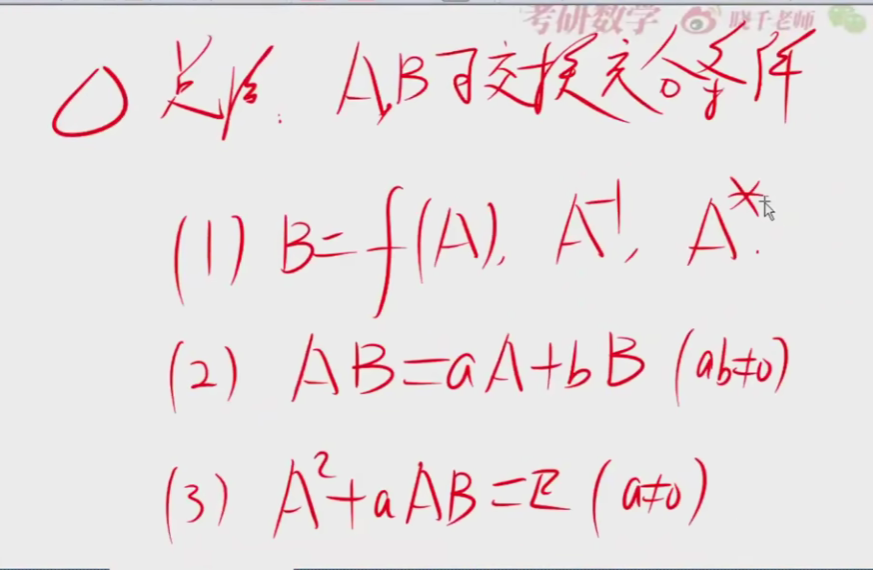 考研数学 晓千老师
总结: A,B可交换充分条件
(1) B=f(A), A⁻¹, A*.
(2) AB=aA+bB (ab≠0)
(3) A²+aAB=E (a≠0)